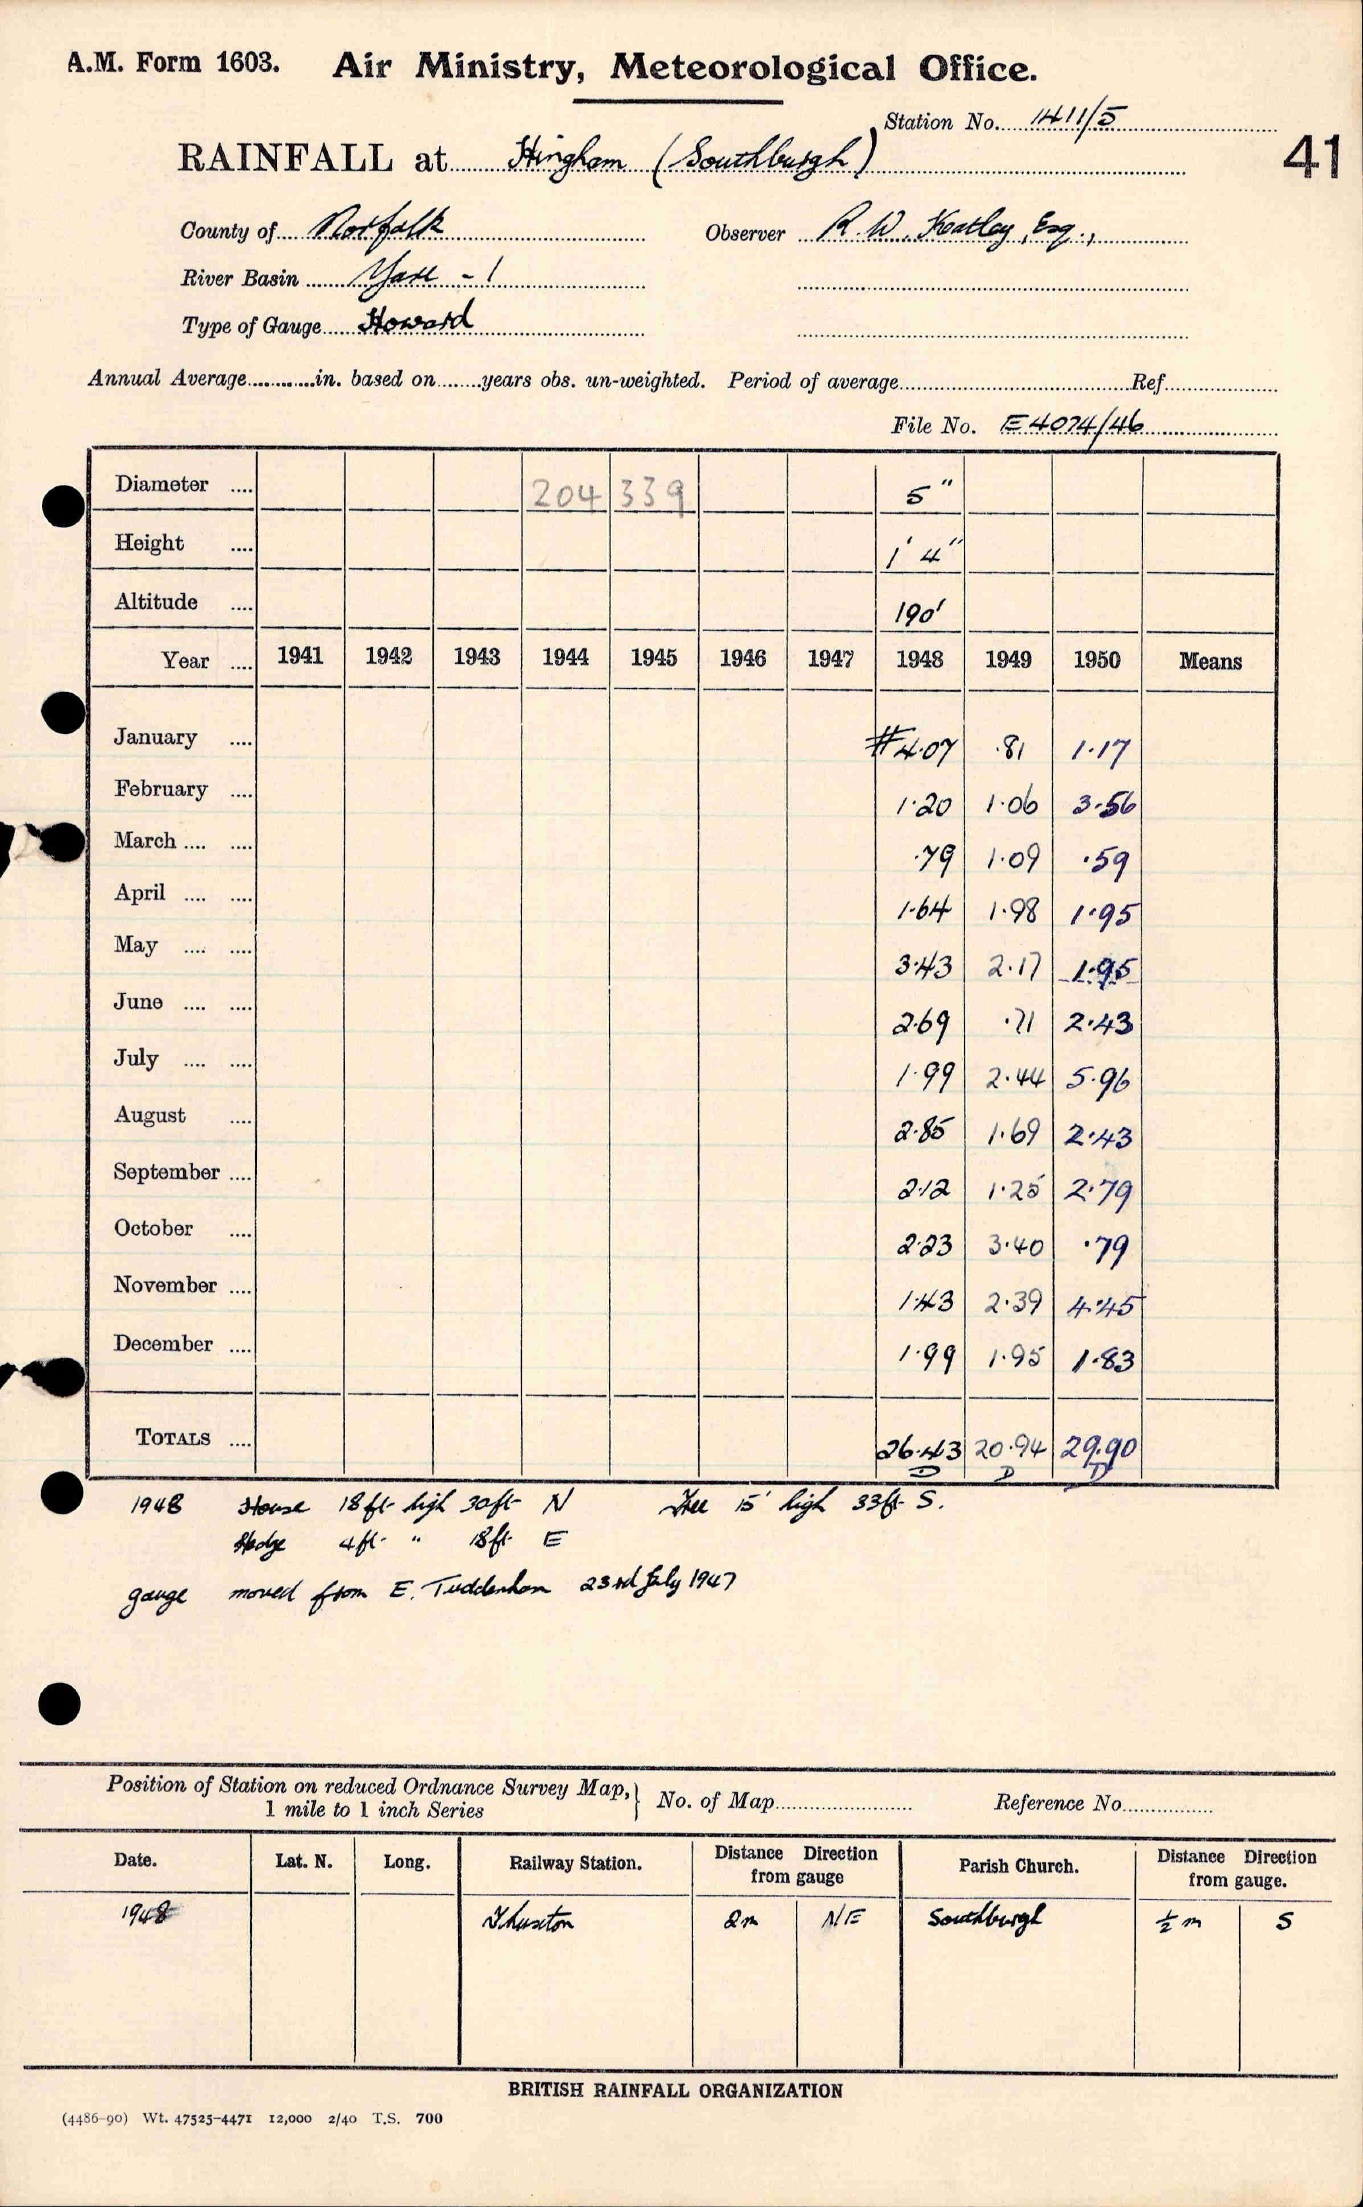 A.M. Form 1603. Air Ministry, Meteorological Office.
Station No. 1411/5
RAINFALL at Hingham (Southburgh)
41
County of Norfolk Observer R. W. Keatley, Esq.,
River Basin Yare - 1
Type of Gauge Howard
Annual Average in. based on years obs. un-weighted. Period of average Ref.
File No. E4074/46
Diameter .... 204 339 5"
Height .... 1' 4"
Altitude .... 190'
Year .... 1941 1942 1943 1944 1945 1946 1947 1948 1949 1950 Means
January .... #4.07 .81 1.17
February .... 1.20 1.06 3.56
March .... .... .79 1.09 .59
April .... .... 1.64 1.98 1.95
May .... .... 3.43 2.17 1.95
June .... .... 2.69 .71 2.43
July .... .... 1.99 2.44 5.96
August .... 2.85 1.69 2.43
September .... 2.12 1.25 2.79
October .... 2.23 3.40 .79
November .... 1.43 2.39 4.45
December .... 1.99 1.95 1.83
TOTALS .... 26.43 20.94 29.90
D D D
1948 House 18ft high 30ft N Tree 15' high 33ft S.
Hedge 4ft " 18ft E
gauge moved from E. Tuddenham 23rd July 1947
Position of Station on reduced Ordnance Survey Map, } No. of Map Reference No.
1 mile to 1 inch Series
Date. Lat. N. Long. Railway Station. Distance Direction from gauge Parish Church. Distance Direction from gauge.
1948 Thuxton 2m NE Southburgh ½ m S
BRITISH RAINFALL ORGANIZATION
(4486-90) Wt. 47525-4471 12,000 2/40 T.S. 700